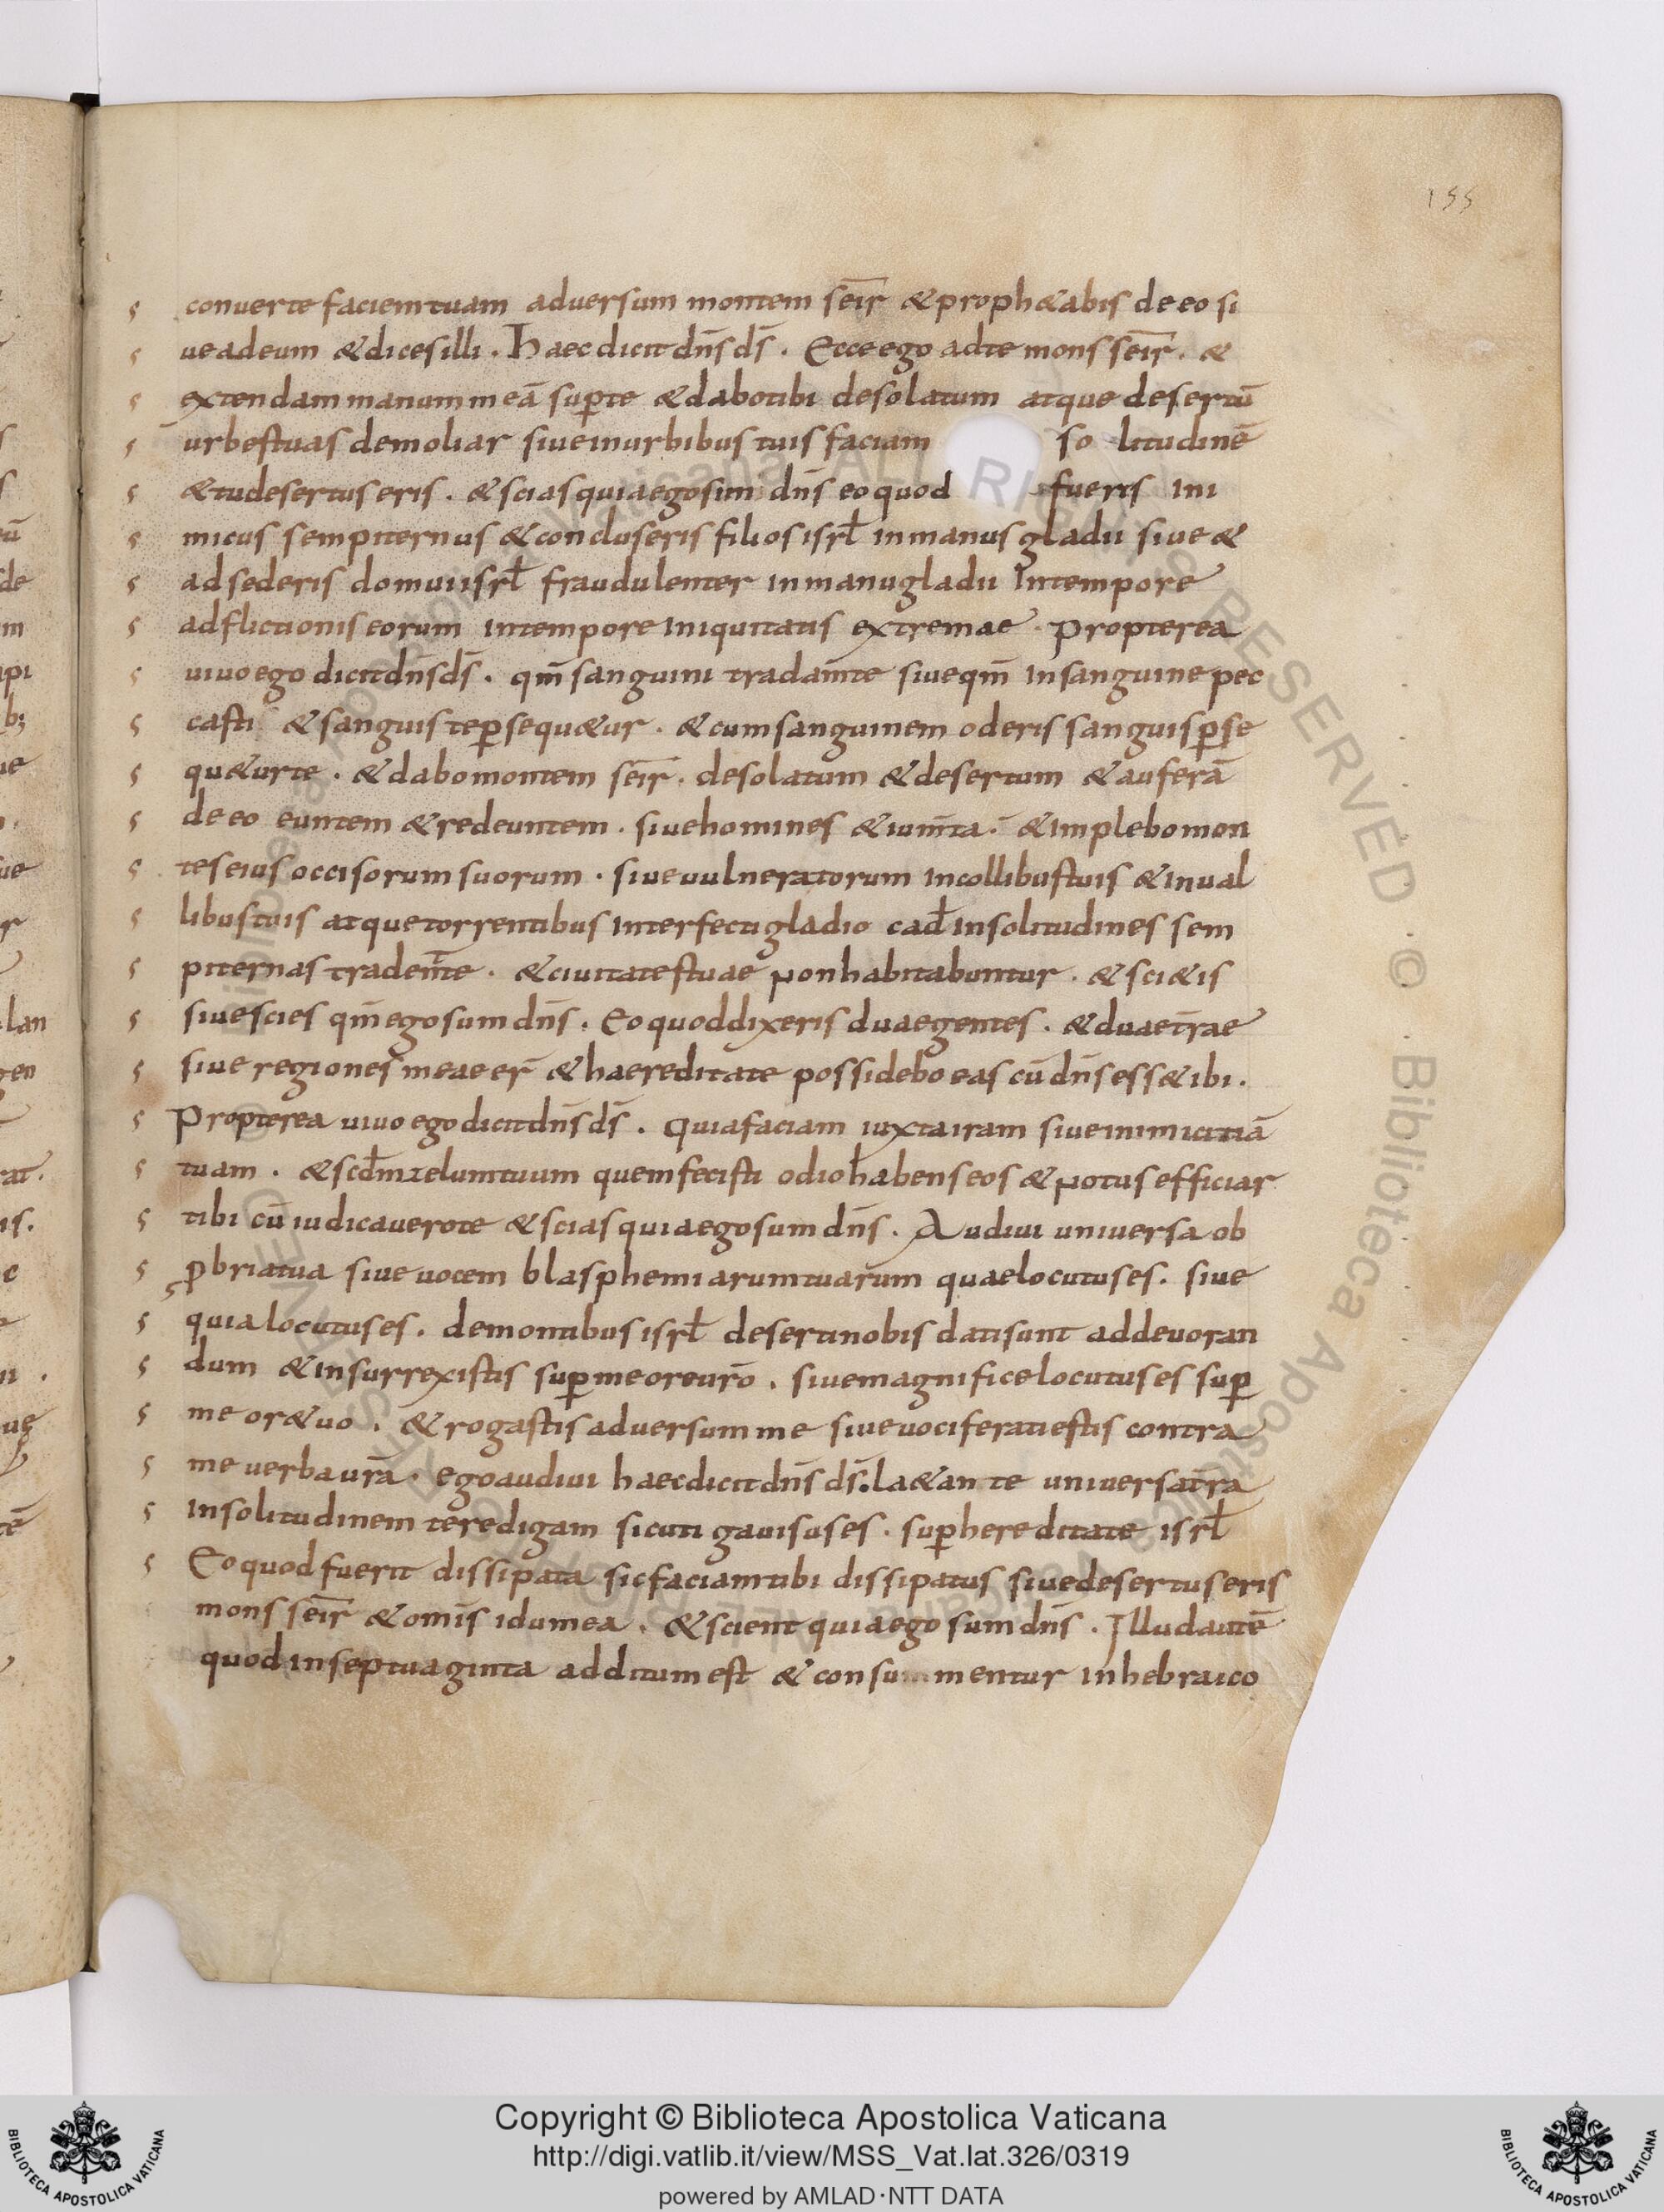 155
conuerte faciem tuam aduersum montem seir̄ & proph&abis de eo si
ue ad eum & dices illi . Haec dicit dn̄s ds̄ . Ecce ego ad te mons seir̄ . &
extendam manum meā sup̱ te & dabo tibi desolatum atque desertū
urbes tuas demoliar siue in urbibus tuis faciam so litudinē
& tu desertus eris . & scias quia ego sim dn̄s eo quod fueris ini
micus sempiternus & concluseris filios isrl̄ in manus gladii siue &
ad sederis domui isrl̄ fraudulenter in manu gladii In tempore
adflictionis eorum in tempore iniquitatis extremae . propterea
uiuo ego dicit dn̄s ds̄ . qm̄ sanguini tradam̄ te siue qm̄ in sanguine pec
casti & sanguis te p̱sequ&ur . & cum sanguinem oderis sanguis p̱se
qu&ur te . & dabo montem seir̄ . desolatum & desertum & auferā
de eo euntem & redeuntem . siue homines & ium̄ta . & implebo mon
tes eius occisorum suorum . siue uulneratorum in collibus tuis & in ual
libus tuis atque torrentibus interfecti gladio cad̄ in solitudines sem
piternas tradem̄ te . & ciuitates tuae non habitabuntur . & sci&is
siue scies qm̄ ego sum dn̄s . Eo quod dixeris duae gentes . & duae tr̄ae
siue regiones meae er̄ & haereditate possidebo eas cū dn̄s ess& ibi .
Propterea uiuo ego dicit dn̄s ds̄ . quia faciam iuxta iram siue inimicitiā
tuam . & scd̄m zelum tuum quem fecisti odio habens eos & notus efficiar
tibi cū iudicauero te & scias quia ego sum dn̄s . Audiui uniuersa ob
p̱bria tua siue uocem blasphemiarum tuarum quae locutus es . siue
quia locutus es . de montibus isrl̄ deserti nobis dati sunt ad deuoran
dum & insurrexistis sup̱ me ore ur̄o . siue magnifice locutus es sup̱
me or& uo . & rogastis aduersum me siue uociferati estis contra
me uerba ur̄a . ego audiui haec dicit dn̄s ds̄ . la&ante uniuersa tr̄a
in solitudinem te redigam sicuti gauisus es . sup̱ hereditate isrl̄
Eo quod fuerit dissipata sic faciam tibi dissipatus siue desertus eris
mons seir̄ & om̄is idumea . & scient quia ego sum dn̄s . Illud autē
quod in septuaginta additum est & consummentur in hebraico
Copyright © Biblioteca Apostolica Vaticana
http://digi.vatlib.it/view/MSS_Vat.lat.326/0319
powered by AMLAD·NTT DATA